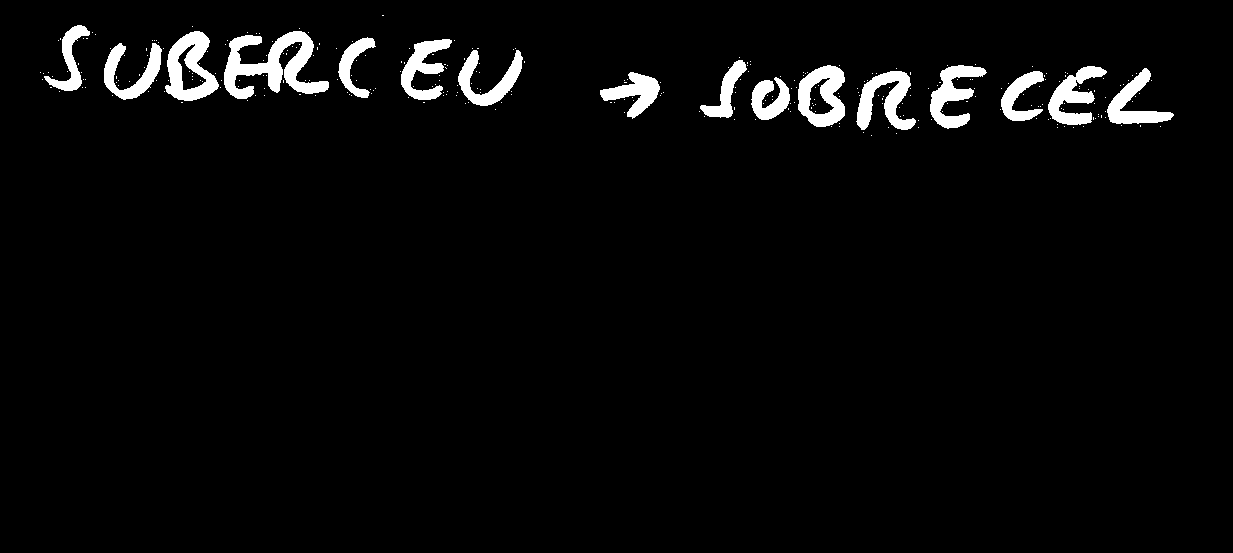 SUBERCEU → SOBRECEL